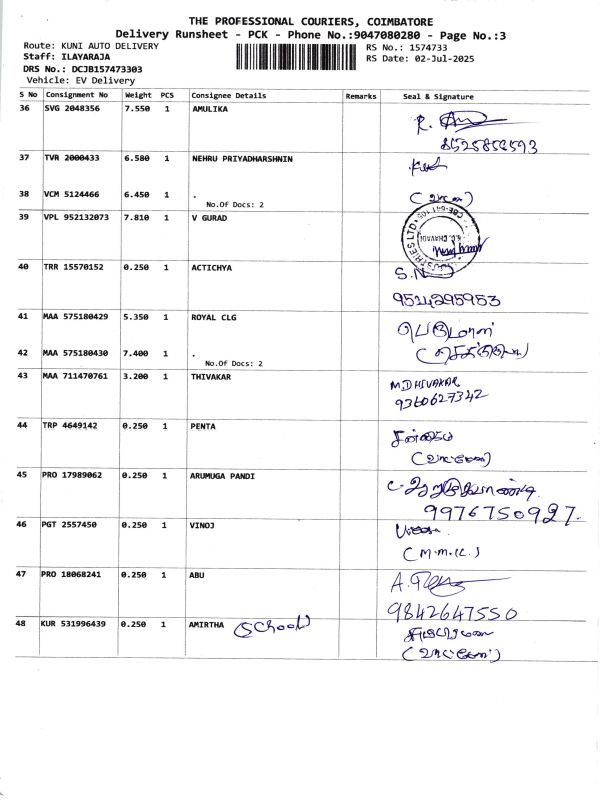 THE PROFESSIONAL COURIERS, COIMBATORE
Delivery Runsheet - PCK - Phone No.:9047080280 - Page No.:3
Route: KUNI AUTO DELIVERY
RS No.: 1574733
Staff: ILAYARAJA
RS Date: 02-Jul-2025
DRS No.: DCJB157473303
Vehicle: EV Delivery
S No Consignment No Weight PCS Consignee Details Remarks Seal & Signature
36 SVG 2048356 7.550 1 AMULIKA R.
8525858593
37 TVR 2000433 6.580 1 NEHRU PRIYADHARSHNIN
38 VCM 5124466 6.450 1 .
No.Of Docs: 2
39 VPL 952132073 7.810 1 V GURAD
40 TRR 15570152 0.250 1 ACTICHYA S.N
9514295953
41 MAA 575180429 5.350 1 ROYAL CLG பெருமாள்
42 MAA 575180430 7.400 1 .
No.Of Docs: 2
43 MAA 711470761 3.200 1 THIVAKAR M.DHIVAKAR
9360627342
44 TRP 4649142 0.250 1 PENTA
45 PRO 17989062 0.250 1 ARUMUGA PANDI
9976750927.
46 PGT 2557450 0.250 1 VINOJ
(M.M.K.)
47 PRO 18068241 0.250 1 ABU
9842647550
48 KUR 531996439 0.250 1 AMIRTHA (School)